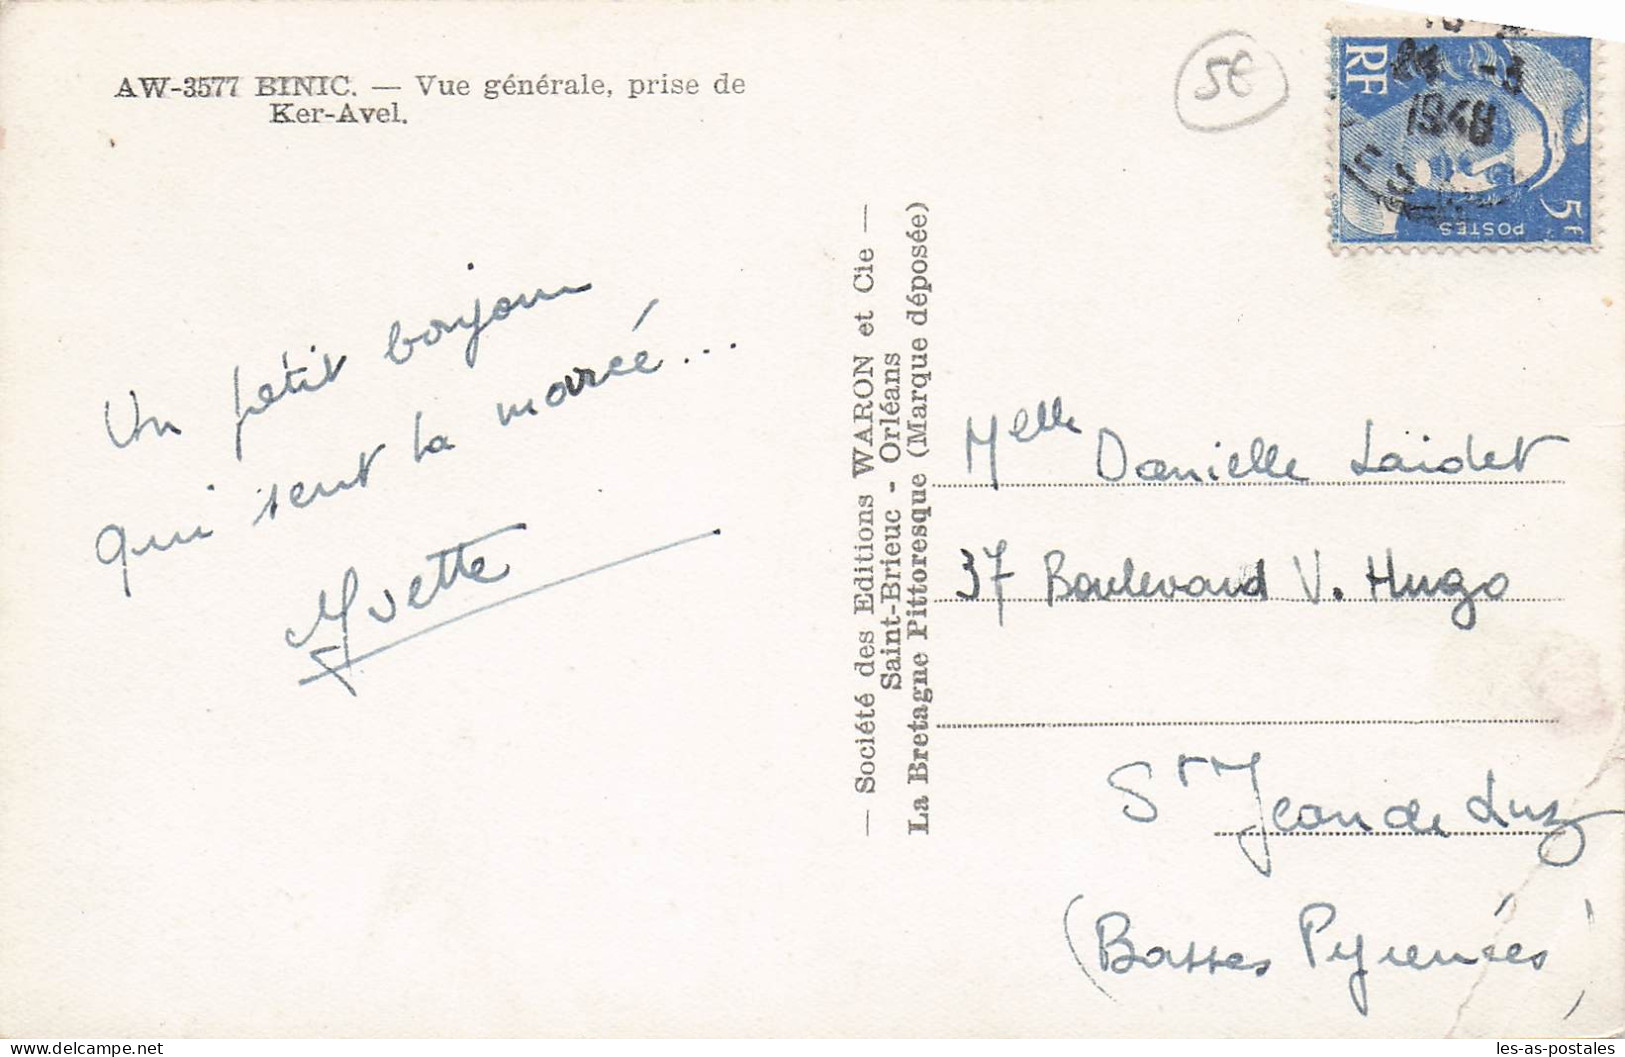 AW-3577 BINIC. — Vue générale, prise de
Ker-Avel.
Un petit bonjour
qui sent la marée...
Yvette
— Société des Editions WARON et Cie —
Saint-Brieuc - Orléans
La Bretagne Pittoresque (Marque déposée)
5€
RF
POSTES
5F
24 -3
1948
Melle Danielle Laidet
37 Boulevard V. Hugo
St Jean de Luz
(Basses Pyrénées)
les-as-postales
delcampe.net